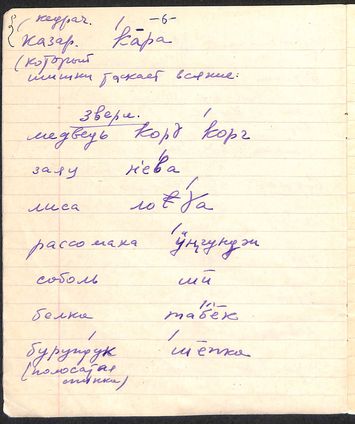 ( кедрач. –6–
казар. ка́ра
(который
шишки таскает всякие.
звери.
медведь корɣ ко́рг
заяц не́ва
лиса локɣа́
россомаха ӱңгундж
соболь шӣ
белка табек
бурундук ше́пка
(полосатая
спинка)